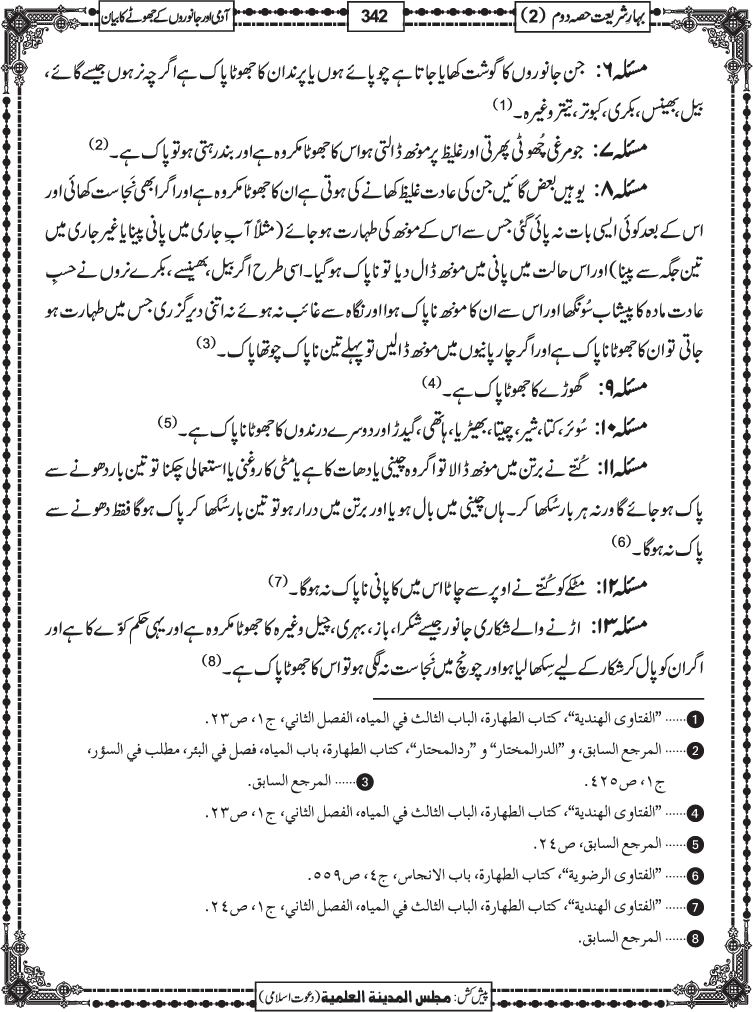 بہار شریعت حصہ دوم (2)
342
آدمی اور جانوروں کے جھوٹے کا بیان
مسئلہ ۶: جن جانوروں کا گوشت کھایا جاتا ہے چوپائے ہوں یا پرند ان کا جھوٹا پاک ہے اگرچہ نر ہوں جیسے گائے،
بیل، بھینس، بکری، کبوتر، تیتر وغیرہ۔ (1)
مسئلہ ۷: جو مرغی چُھوٹی پھرتی اور غلیظ پر مونھ ڈالتی ہو اس کا جھوٹا مکروہ ہے اور بند رہتی ہو تو پاک ہے۔ (2)
مسئلہ ۸: یوہیں بعض گائیں جن کی عادت غلیظ کھانے کی ہوتی ہے ان کا جھوٹا مکروہ ہے اور اگر ابھی نَجاست کھائی اور
اس کے بعد کوئی ایسی بات نہ پائی گئی جس سے اس کے مونھ کی طہارت ہو جائے (مثلاً آبِ جاری میں پانی پینا یا غیر جاری میں
تین جگہ سے پینا) اور اس حالت میں پانی میں مونھ ڈال دیا تو ناپاک ہو گیا۔ اسی طرح اگر بیل، بھینسے، بکرے نروں نے حسبِ
عادت مادہ کا پیشاب سُونگھا اور اس سے ان کا مونھ ناپاک ہوا اور نگاہ سے غائب نہ ہوئے نہ اتنی دیر گزری جس میں طہارت ہو
جاتی تو ان کا جھوٹا ناپاک ہے اور اگر چار پانیوں میں مونھ ڈالیں تو پہلے تین ناپاک چوتھا پاک۔ (3)
مسئلہ ۹: گھوڑے کا جھوٹا پاک ہے۔ (4)
مسئلہ ۱۰: سُوئر، کتا، شیر، چیتا، بھیڑیا، ہاتھی، گیدڑ اور دوسرے درندوں کا جھوٹا ناپاک ہے۔ (5)
مسئلہ ۱۱: کُتّے نے برتن میں مونھ ڈالا تو اگر وہ چینی یا دھات کا ہے یا مٹی کا روغنی یا استعمالی چکنا تو تین بار دھونے سے
پاک ہو جائے گا ورنہ ہر بار سُکھا کر۔ ہاں چینی میں بال ہو یا اور برتن میں درار ہو تو تین بار سُکھا کر پاک ہوگا فقط دھونے سے
پاک نہ ہوگا۔ (6)
مسئلہ ۱۲: مٹکے کو کُتّے نے اوپر سے چاٹا اس میں کا پانی ناپاک نہ ہوگا۔ (7)
مسئلہ ۱۳: اڑنے والے شکاری جانور جیسے شکرا، باز، بہری، چیل وغیرہ کا جھوٹا مکروہ ہے اور یہی حکم کوّے کا ہے اور
اگر ان کو پال کر شکار کے لیے سِکھا لیا ہو اور چونچ میں نَجاست نہ لگی ہو تو اس کا جھوٹا پاک ہے۔ (8)
1 ...... "الفتاوی الهندية"، كتاب الطهارة، الباب الثالث في المياه، الفصل الثاني، ج١، ص٢٣.
2 ...... المرجع السابق، و "الدرالمختار" و "ردالمحتار"، كتاب الطهارة، باب المياه، فصل في البئر، مطلب في السؤر،
ج١، ص٤٢٥. 3 ...... المرجع السابق.
4 ...... "الفتاوی الهندية"، كتاب الطهارة، الباب الثالث في المياه، الفصل الثاني، ج١، ص٢٣.
5 ...... المرجع السابق، ص٢٤.
6 ...... "الفتاوی الرضوية"، كتاب الطهارة، باب الانجاس، ج٤، ص٥٥٩.
7 ...... "الفتاوی الهندية"، كتاب الطهارة، الباب الثالث في المياه، الفصل الثاني، ج١، ص٢٤.
8 ...... المرجع السابق.
پیش کش: مجلس المدينة العلمية (دعوت اسلامی)